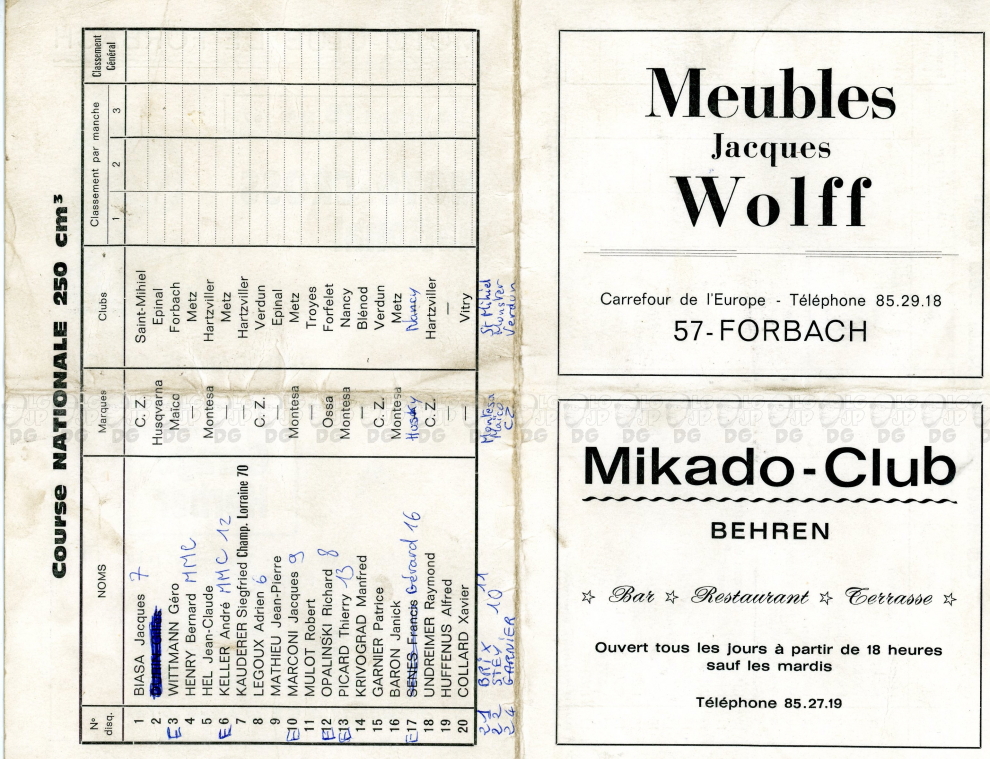 Course NATIONALE 250 cm³
N° disq. NOMS Marques Clubs Classement par manche Classement Général
1 2 3
1 BIASA Jacques 7 C. Z. Saint-Mihiel
2 Husqvarna Epinal
E 3 WITTMANN Géro Maico Forbach
4 HENRY Bernard MMC — Metz
5 HEL Jean-Claude Montesa Hartzviller
E 6 KELLER André MMC 12 — Metz
7 KAUDERER Siegfried Champ. Lorraine 70 — Hartzviller
8 LEGOUX Adrien 6 C. Z. Verdun
9 MATHIEU Jean-Pierre — Epinal
E 10 MARCONI Jacques 9 Montesa Metz
11 MULOT Robert — Troyes
E 12 OPALINSKI Richard 8 Ossa Forfelet
E 13 PICARD Thierry 13 Montesa Nancy
14 KRIVOGRAD Manfred — Blénod
15 GARNIER Patrice C. Z. Verdun
16 BARON Janick Montesa Metz
E 17 SENES Francis Gérard 16 Husky Nancy
18 UNDREIMER Raymond C. Z. Hartzviller
19 HUFFENUS Alfred — —
20 COLLARD Xavier — Vitry
21 BRIX 11 Montesa St Mihiel
22 STEY 10 Maico Munster
24 GARNIER CZ Verdun
Meubles
Jacques
Wolff
Carrefour de l'Europe - Téléphone 85.29.18
57-FORBACH
Mikado-Club
BEHREN
Bar Restaurant Terrasse
Ouvert tous les jours à partir de 18 heures
sauf les mardis
Téléphone 85.27.19